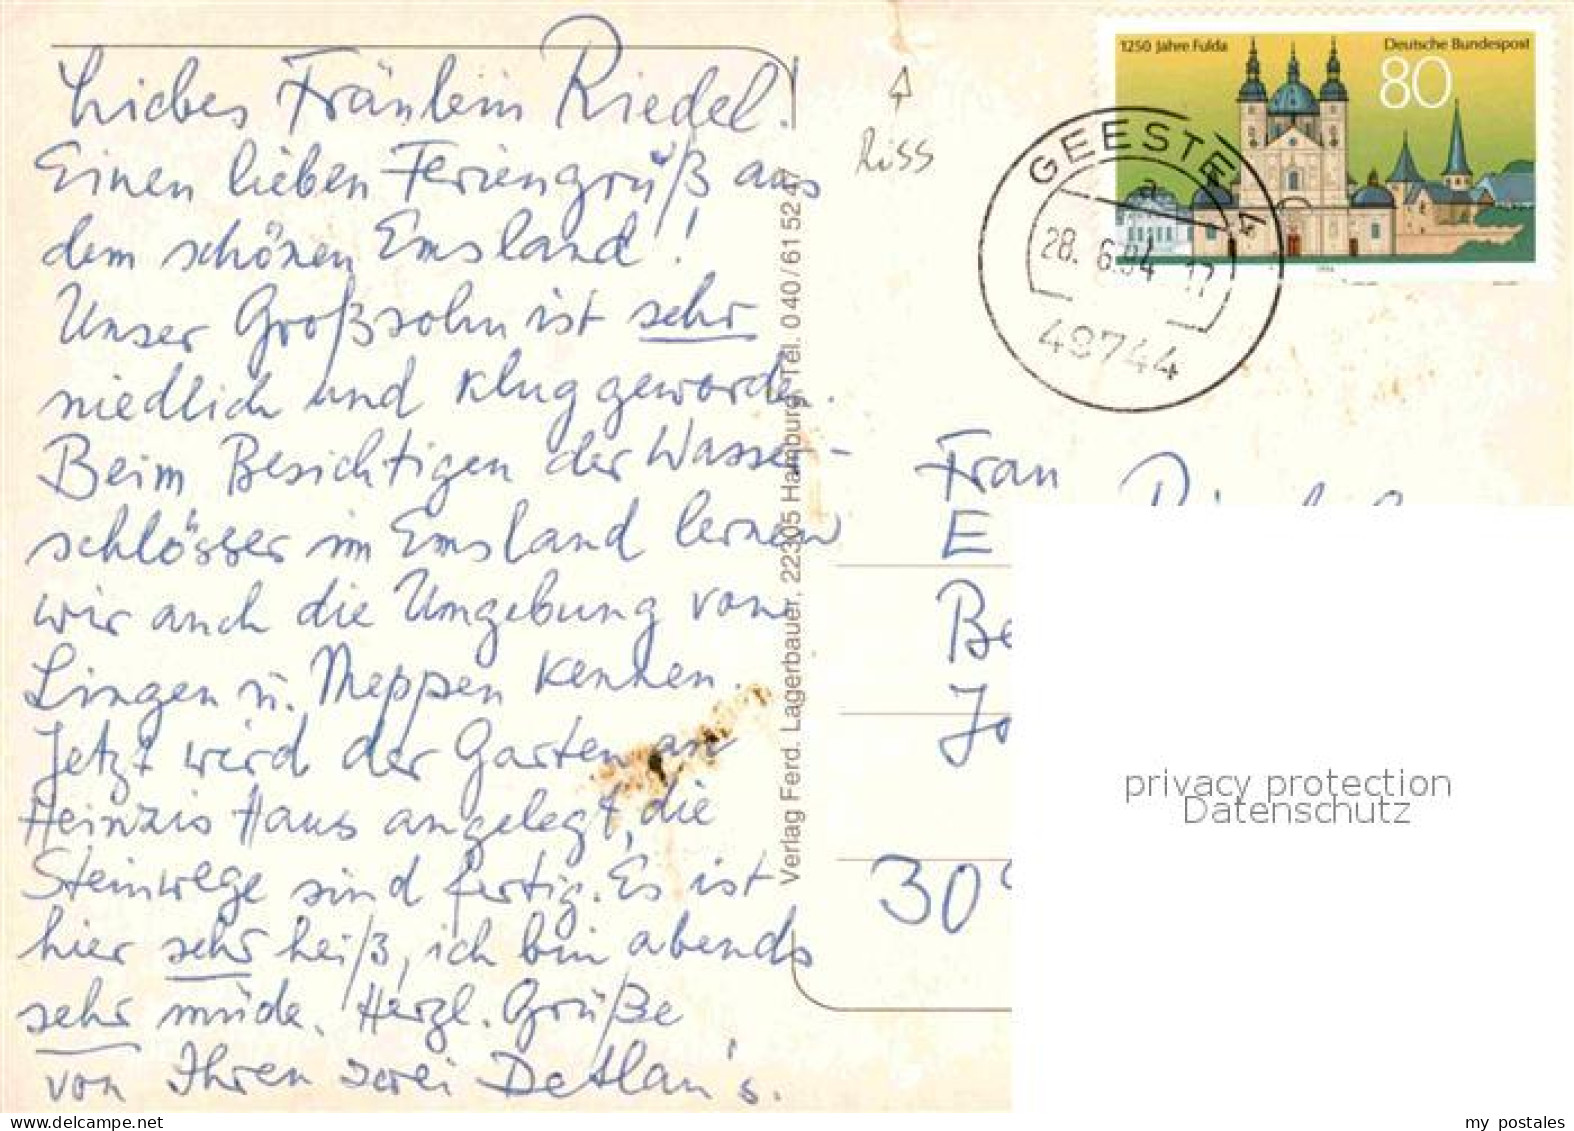 Liebes Fräulein Riedel!
Einen lieben Feriengruß aus
dem schönen Emsland!
Unser Großsohn ist sehr
niedlich und klug geworden.
Beim Besichtigen der Wasser-
schlösser im Emsland lernen
wir auch die Umgebung von
Lingen u. Meppen kennen.
Jetzt wird der Garten an
Heinzis Haus angelegt, die
Steinwege sind fertig. Es ist
hier sehr heiß, ich bin abends
sehr müde. Herzl. Grüße
von Ihren zwei Detlau's.
Verlag Ferd. Lagerbauer, 22305 Hamburg, Tel. 040/61 52 47
Riss
1250 Jahre Fulda
Deutsche Bundespost
80
GEESTE 1
a
28. 6.94 - 17
49744
Frau
E
Be
Jo
30
privacy protection
Datenschutz
delcampe.net
my_postales